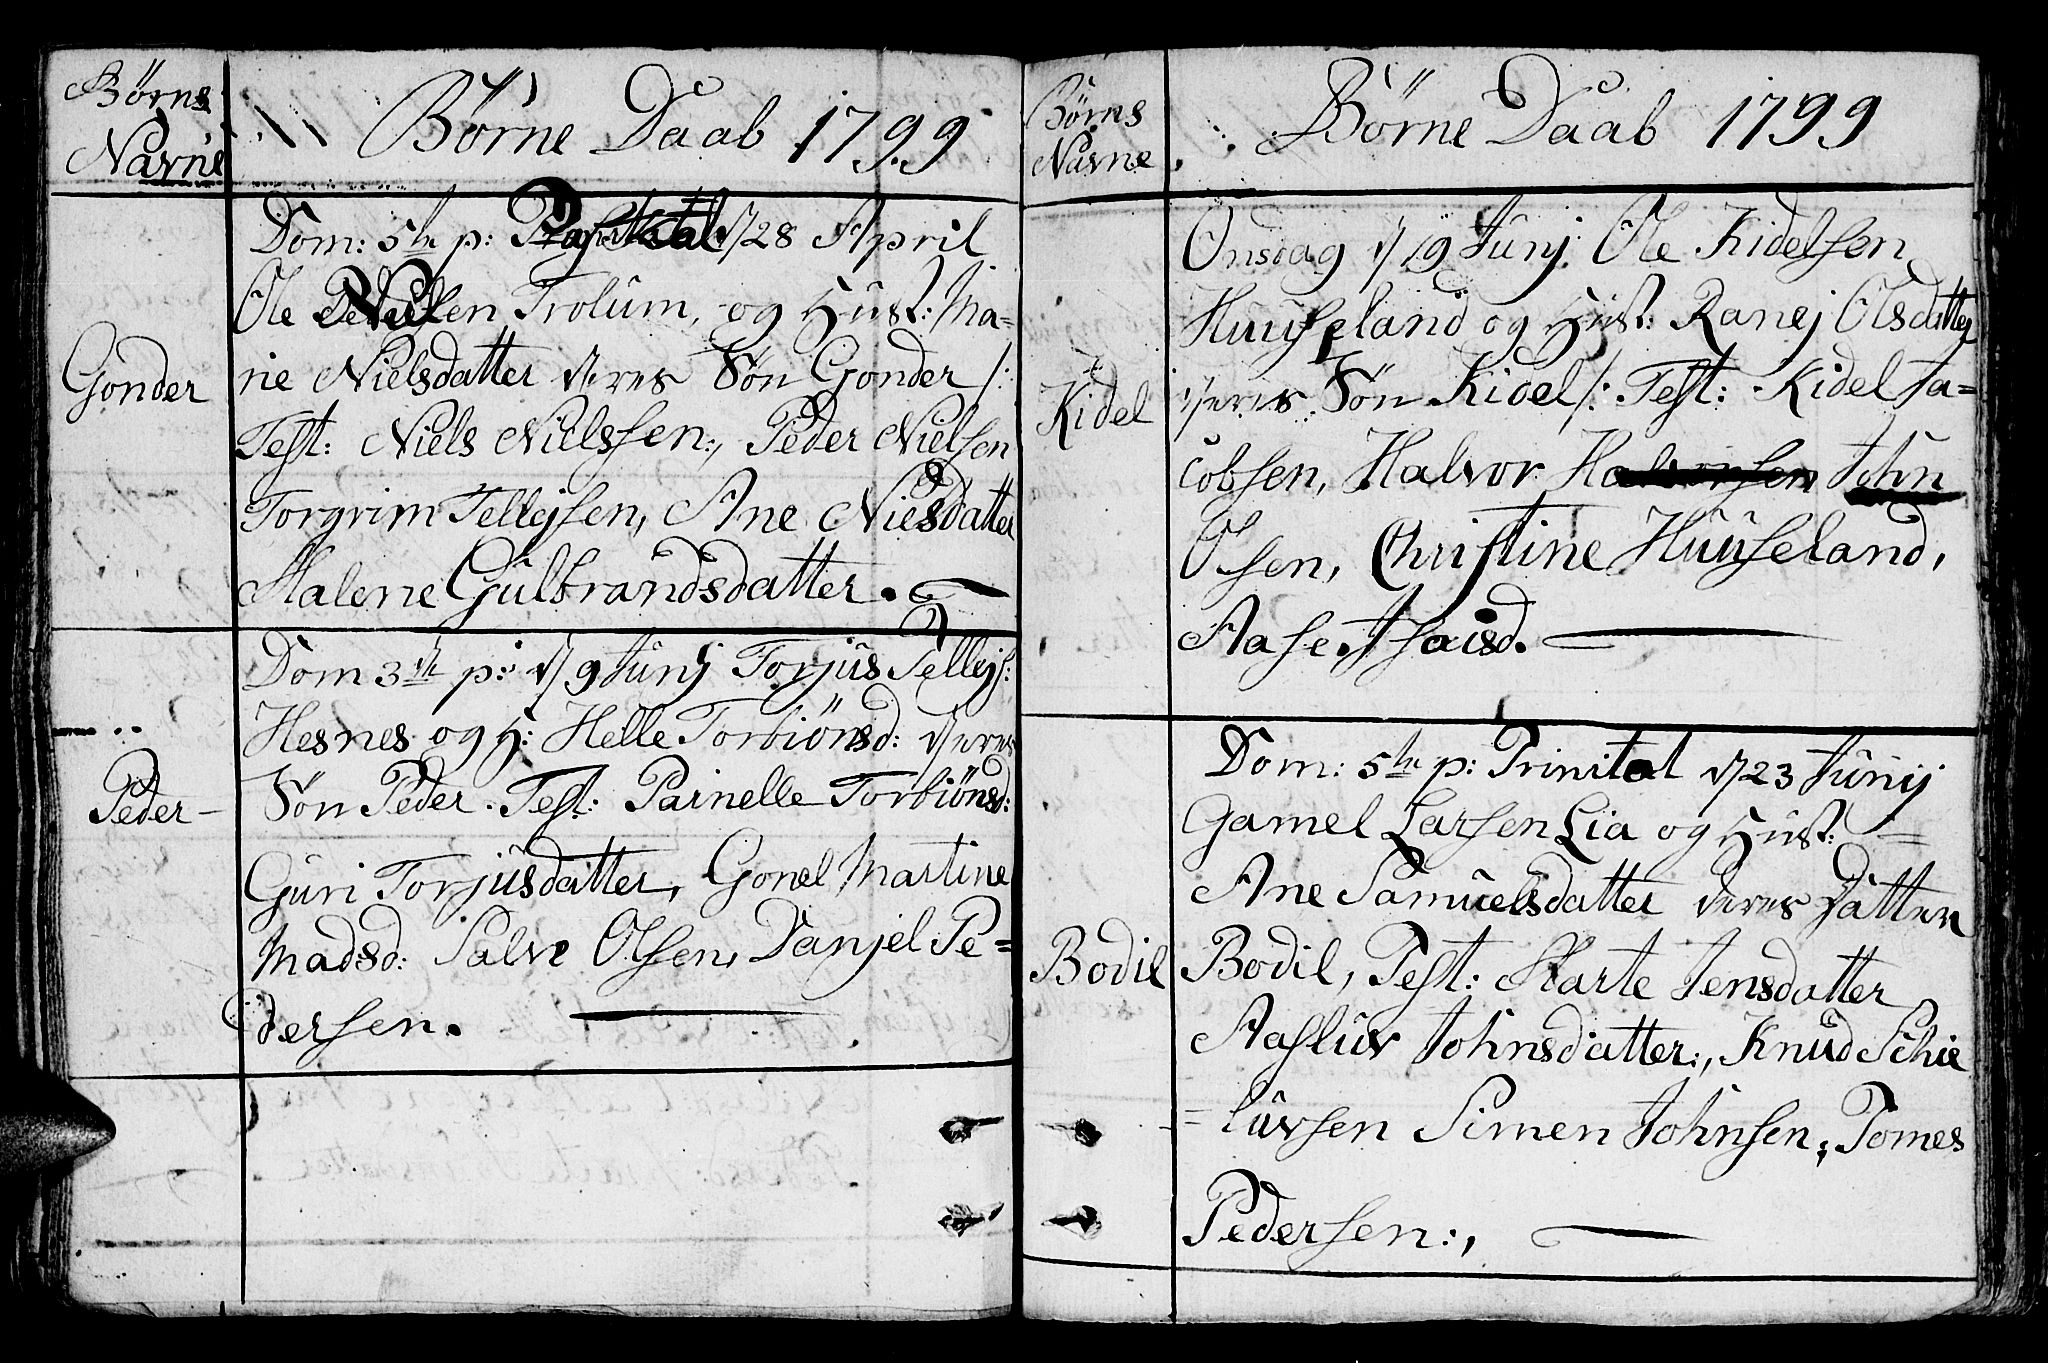 Börns
Navne
Börne Daab 1799
Dom: 5te p: Pascal d 28 April
Ole Nielsen Trolum, og Hust: Ma=
rie Nielsdatter deres Sön Gonder /:
Gonder
Test: Niels Nielssen:, Peder Nielsen
Torgrim Tellejsen, Ane Nielsdatter
Malene Gulbrandsdatter.
Dom 3die p: d 9 Junj Torjus Tellejs:
Hesnes og H: Helle Torbiönsd: deres
Peder
Sön Peder. Test: Parnelle Torbiönsd:
Guri Torjusdatter, Gonel Martine
Madsd: Salve Olsen, Danjel Pe=
dersen.
Börns
Navne
Börne Daab 1799
Onsdag d 19 Junj Ole Kidelsen
Huuseland og Hust: Ranej Olsdatter
Kidel
deres Sön Kidel /: Test: Kidel Ja=
cobsen, Halvor Halvorsen John
Olsen, Christine Huuseland,
Aase Isaisd.
Dom: 5te p: Trinitat d 23 Junij
Gamel Larsen Lia og Hust: =
Ane Samuelsdatter deres Datter
Bodil
Bodil, Test: Marte Jensdatter
Aasluv Johnsdatter:, Knud Schie
= luvsen Simen Johnsen, Tomes
Pedersen:,